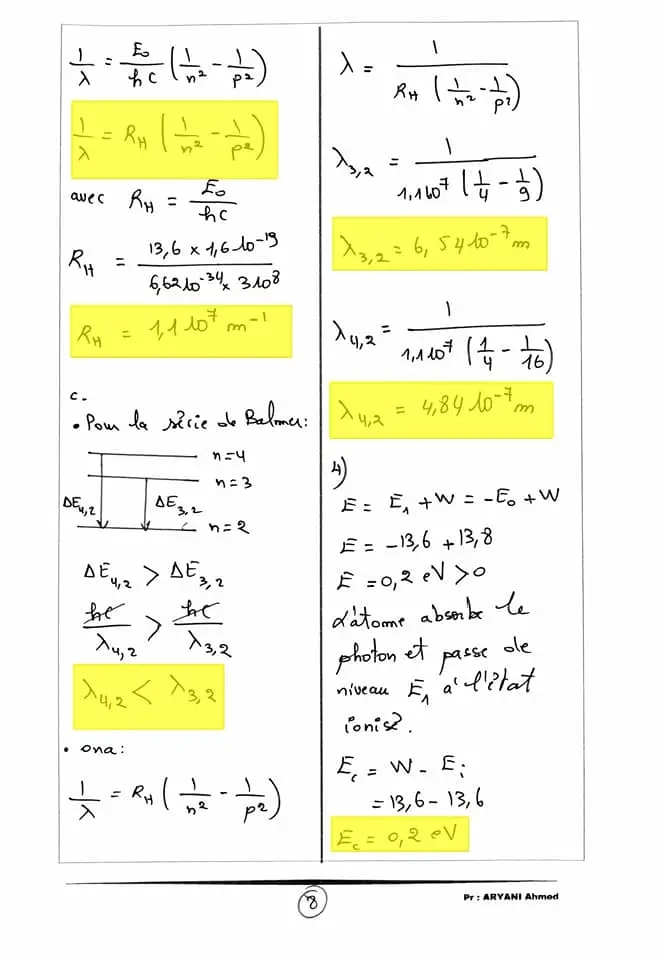 1/λ = E₀/hc (1/n² - 1/p²)
1/λ = R_H (1/n² - 1/p²)
avec R_H = E₀/hc
R_H = 13,6 x 1,6 10⁻¹⁹ / 6,62 10⁻³⁴ x 3 10⁸
R_H = 1,1 10⁷ m⁻¹
c.
• Pour la série de Balmer:
n=4
n=3
ΔE₄,₂ ΔE₃,₂
n=2
ΔE₄,₂ > ΔE₃,₂
hc/λ₄,₂ > hc/λ₃,₂
λ₄,₂ < λ₃,₂
• ona:
1/λ = R_H (1/n² - 1/p²)
λ = 1 / R_H (1/n² - 1/p²)
λ₃,₂ = 1 / 1,1 10⁷ (1/4 - 1/9)
λ₃,₂ = 6,54 10⁻⁷ m
λ₄,₂ = 1 / 1,1 10⁷ (1/4 - 1/16)
λ₄,₂ = 4,84 10⁻⁷ m
4)
E = E₁ + W = -E₀ + W
E = -13,6 + 13,8
E = 0,2 eV > 0
L'atome absorbe le
photon et passe de
niveau E₁ a' l'état
ionisé.
E_c = W - E_i
= 13,6 - 13,6
E_c = 0,2 eV
8
Pr : ARYANI Ahmed